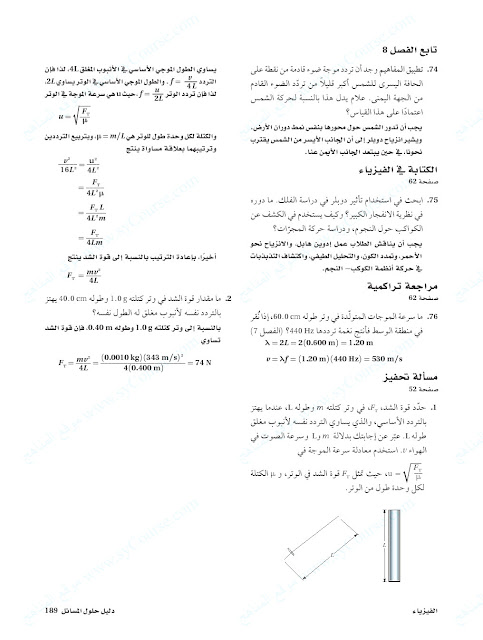 تابع الفصل 8
74. تطبيق المفاهيم وجد أن تردد موجة ضوء قادمة من نقطة على
الحافة اليسرى للشمس أكبر قليلاً من تردّد الضوء القادم
من الجهة اليمنى. علام يدل هذا بالنسبة لحركة الشمس
اعتمادًا على هذا القياس؟
يجب أن تدور الشمس حول محورها بنفس نمط دوران الأرض.
ويشير انزياح دوبلر إلى أن الجانب الأيسر من الشمس يقترب
نحونا، في حين يبتعد الجانب الأيمن عنا.
الكتابة في الفيزياء
صفحة 62
75. ابحث في استخدام تأثير دوبلر في دراسة الفلك. ما دوره
في نظرية الانفجار الكبير؟ وكيف يستخدم في الكشف عن
الكواكب حول النجوم، ودراسة حركة المجرّات؟
يجب أن يناقش الطلاب عمل إدوين هابل، والانزياح نحو
الأحمر، وتمدد الكون، والتحليل الطيفي، واكتشاف التذبذبات
في حركة أنظمة الكوكب– النجم.
مراجعة تراكمية
صفحة 62
76. ما سرعة الموجات المتولّدة في وتر طوله 60.0 cm، إذا نُقر
في منطقة الوسط فأنتج نغمة ترددها 440 Hz؟ (الفصل 7)
λ = 2L = 2(0.600 m) = 1.20 m
v = λf = (1.20 m)(440 Hz) = 530 m/s
مسألة تحفيز
صفحة 52
1. حدّد قوة الشد، F_T، في وتر كتلته m وطوله L، عندما يهتز
بالتردد الأساسي، والذي يساوي التردد نفسه لأنبوب مغلق
طوله L. عبّر عن إجابتك بدلالة m و L وسرعة الصوت في
الهواء v. استخدم معادلة سرعة الموجة في
u = √(F_T/μ)، حيث تمثل F_T قوة الشد في الوتر، و μ الكتلة
لكل وحدة طول من الوتر.
L
يساوي الطول الموجي الأساسي في الأنبوب المغلق 4L، لذا فإن
التردد f = v/4L، والطول الموجي الأساسي في الوتر يساوي 2L،
لذا فإن تردد الوتر f = u/2L، حيث u هي سرعة الموجة في الوتر
u = √(F_T/μ)
والكتلة لكل وحدة طول للوتر هي μ = m/L، وبتربيع الترددين
وترتيبهما بعلاقة مساواة ينتج
v²/16L² = u²/4L²
= F_T/4L²μ
= F_T L/4L²m
= F_T/4Lm
أخيرًا، بإعادة الترتيب بالنسبة إلى قوة الشد ينتج
F_T = mv²/4L
2. ما مقدار قوة الشد في وتر كتلته 1.0 g وطوله 40.0 cm يهتز
بالتردد نفسه لأنبوب مغلق له الطول نفسه؟
بالنسبة إلى وتر كتلته 1.0 g وطوله 0.40 m، فإن قوة الشد
تساوي
F_T = mv²/4L = (0.0010 kg)(343 m/s)²/4(0.400 m) = 74 N
الفيزياء
دليل حلول المسائل 189